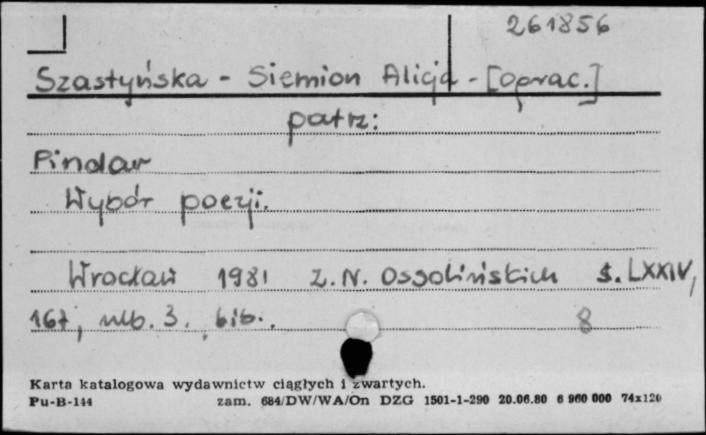 261856
Szastyńska - Siemion Alicja - [oprac.]
patrz:
Pindar
Wybór poezji.
Wrocław 1981 Z. N. Ossolińskich s. LXXIV,
167, nlb. 3., bib..
8
Karta katalogowa wydawnictw ciągłych i zwartych.
Pu-B-144 zam. 684/DW/WA/On DZG 1501-1-290 20.06.80 6 960 000 74x120